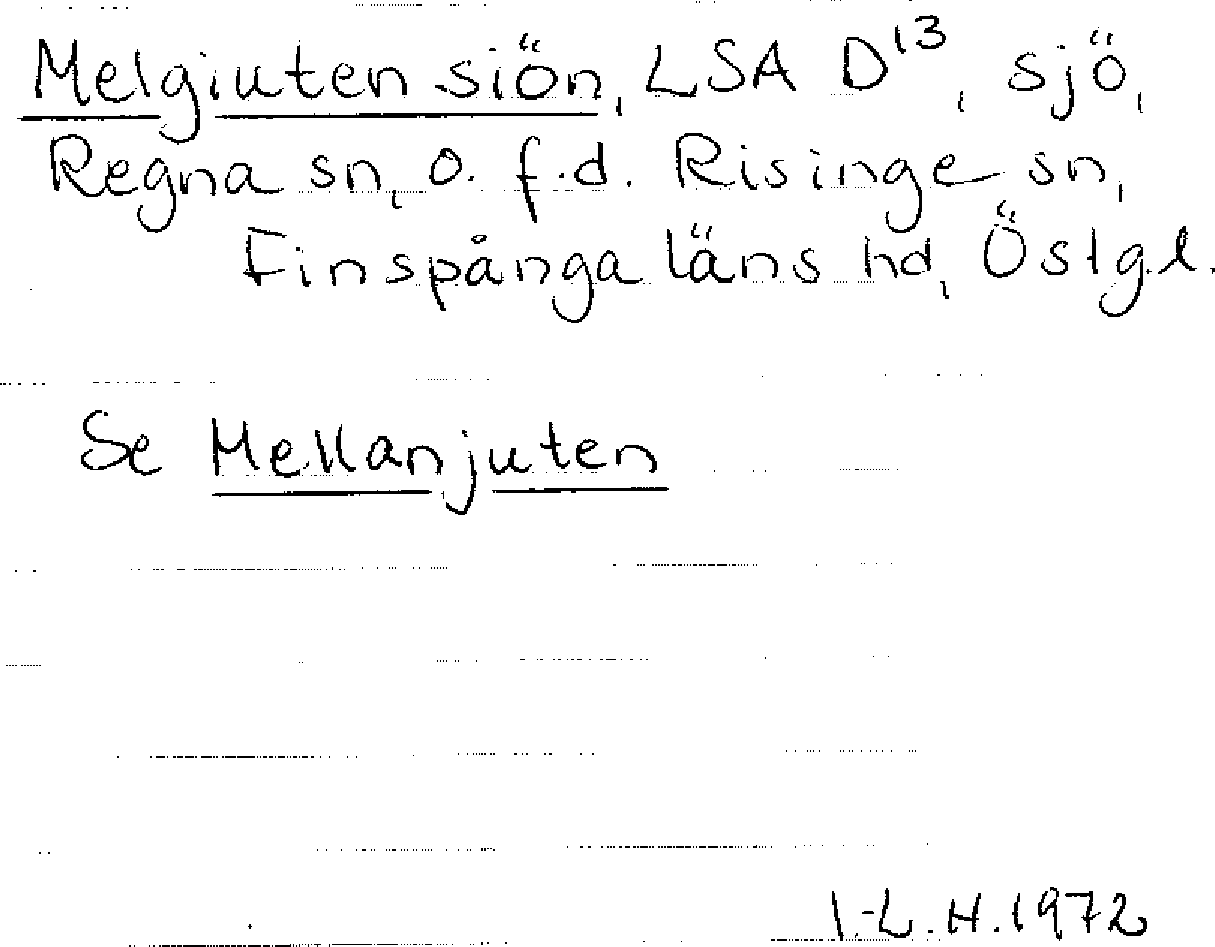 Melgiuten siön, LSA D¹³, sjö,
Regna sn, o. f.d. Risinge sn,
Finspånga läns hd, Östg.l.
Se Mellanjuten
I-L.H.1972